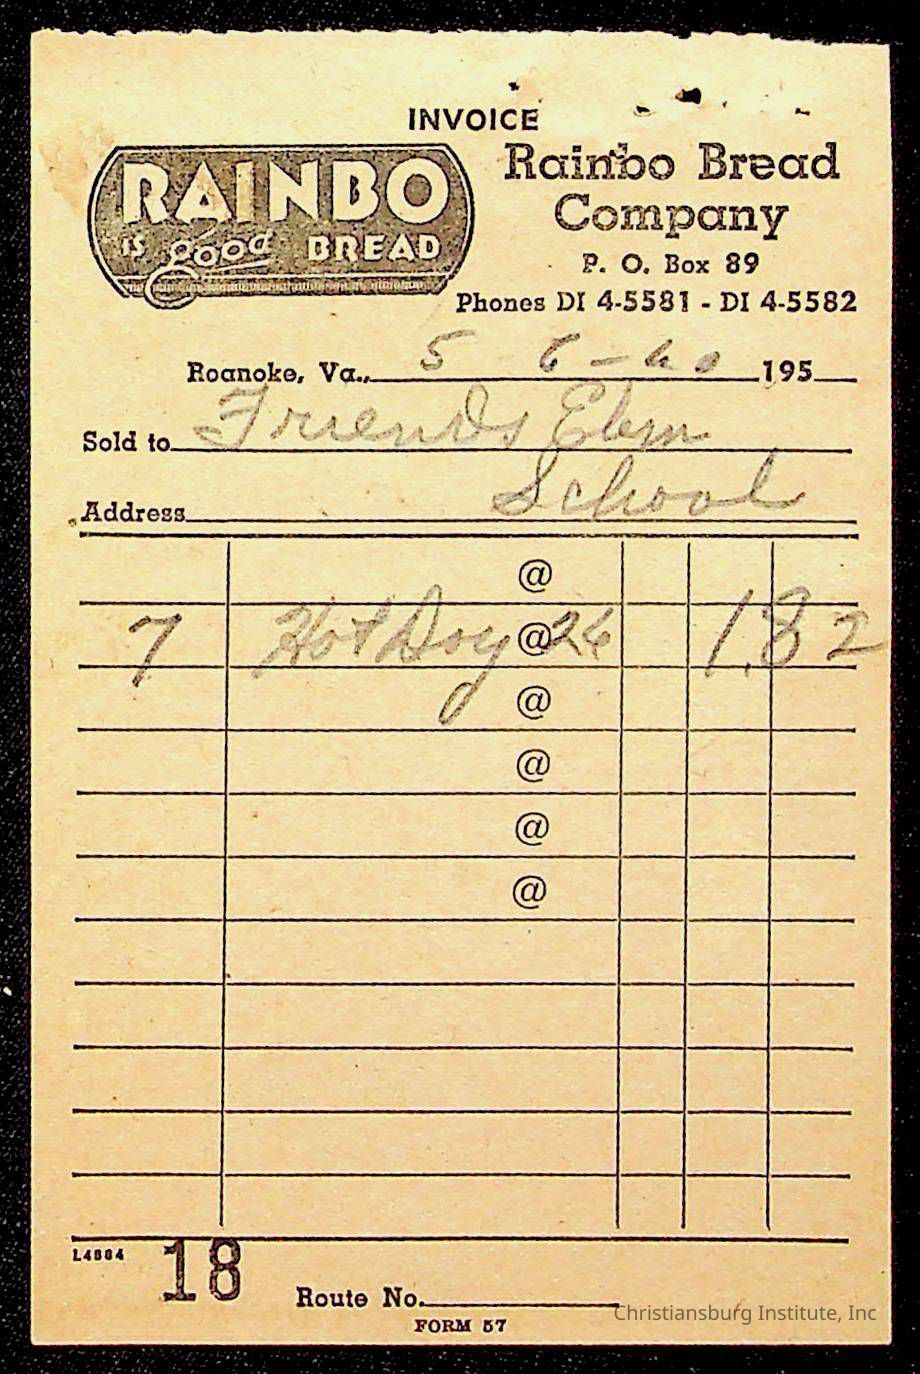 INVOICE
RAINBO
IS good BREAD
Rainbo Bread
Company
P. O. Box 89
Phones DI 4-5581 - DI 4-5582
Roanoke, Va., 5 6-60 195
Sold to Friends Elem
Address School
@
7 Hot Dog @ 26 1.82
@
@
@
@
L4884
18 Route No.
FORM 57
Christiansburg Institute, Inc